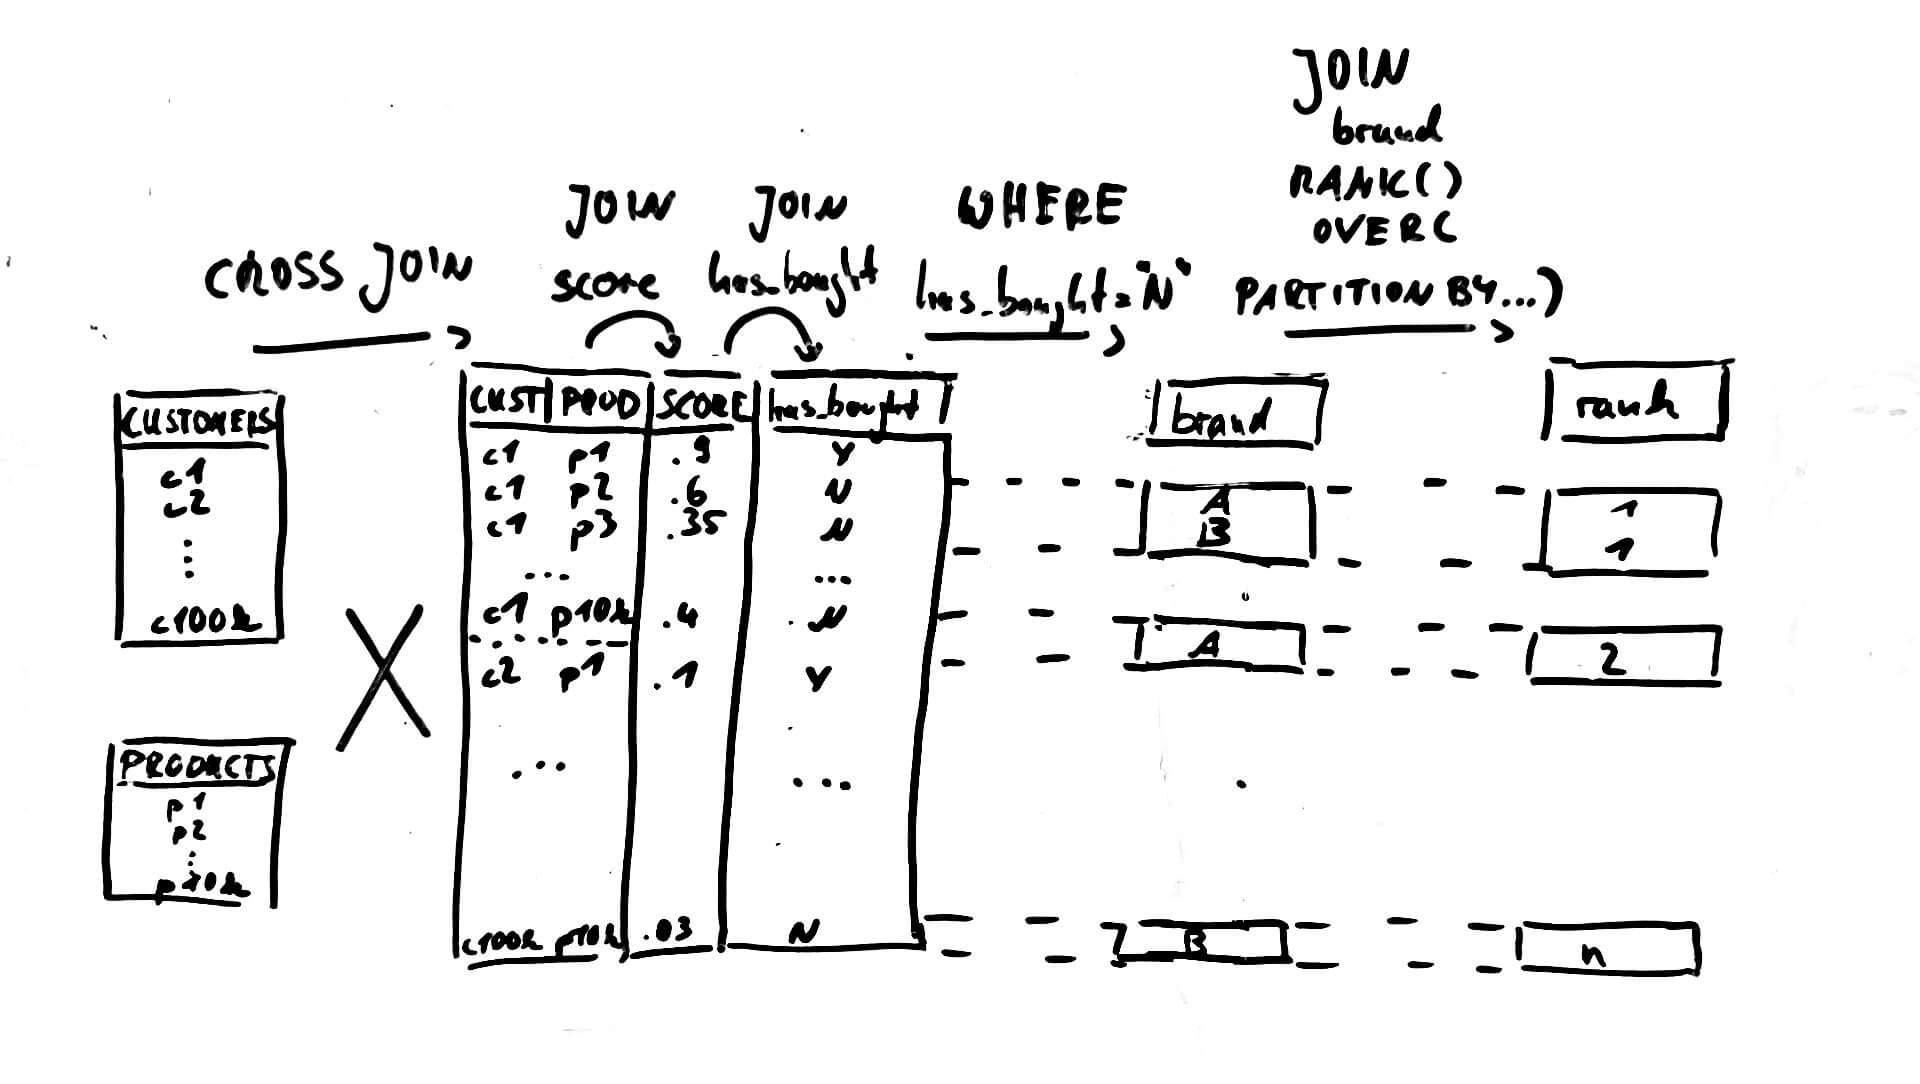 JOIN
brand
RANK()
OVER(
PARTITION BY...)
WHERE
has_bought="N"
JOIN
has_bought
JOIN
score
CROSS JOIN
CUSTOMERS
c1
c2
...
c100k
X
PRODUCTS
p1
p2
...
p10k
CUST PROD SCORE has_bought
c1 p1 .9 Y
c1 p2 .6 N
c1 p3 .35 N
... ...
c1 p10k .4 N
c2 p1 .1 Y
... ...
c100k p10k .03 N
brand
A
B
A
B
rank
1
1
2
n